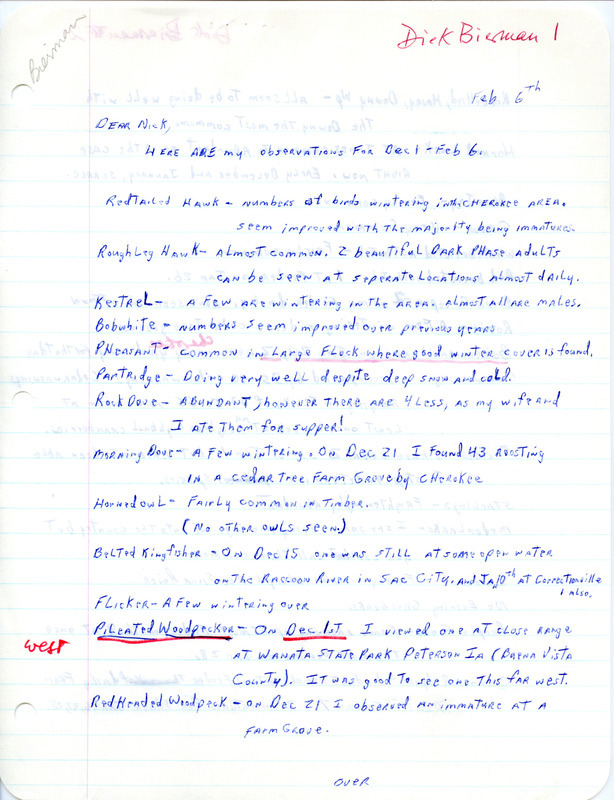 Bierman
Dick Bierman 1
Feb 6th
Dear Nick,
Here are my observations for Dec 1 - Feb 6.
Redtailed Hawk - numbers of birds wintering in the Cherokee area.
seem improved with the majority being immatures.
Roughleg Hawk - Almost common. 2 beautiful dark phase adults
can be seen at seperate locations almost daily.
Kestrel - a few are wintering in the area. almost all are males.
Bobwhite - numbers seem improved over previous years
Pheasant - common in large flock where good winter cover is found.
Partridge - Doing very well despite deep snow and cold.
Rock Dove - Abundant, however there are 4 less, as my wife and
I ate them for supper!
Morning Dove - a few wintering. On Dec 21 I found 43 roosting
in a cedar tree farm grove by Cherokee
Horned owl - Fairly common in timber.
(No other owls seen.)
Belted Kingfisher - On Dec 15 one was still at some open water
on the Raccoon River in Sac City. and Ja 10th at Correctionville
1 also.
Flicker - A few wintering over
Pileated Woodpecker - On Dec. 1st I viewed one at close range
west
at Wanata State Park Peterson Ia (Buena Vista
County). It was good to see one this far west.
Red Headed Woodpeck - on Dec 21 I observed an immature at a
farm grove.
over